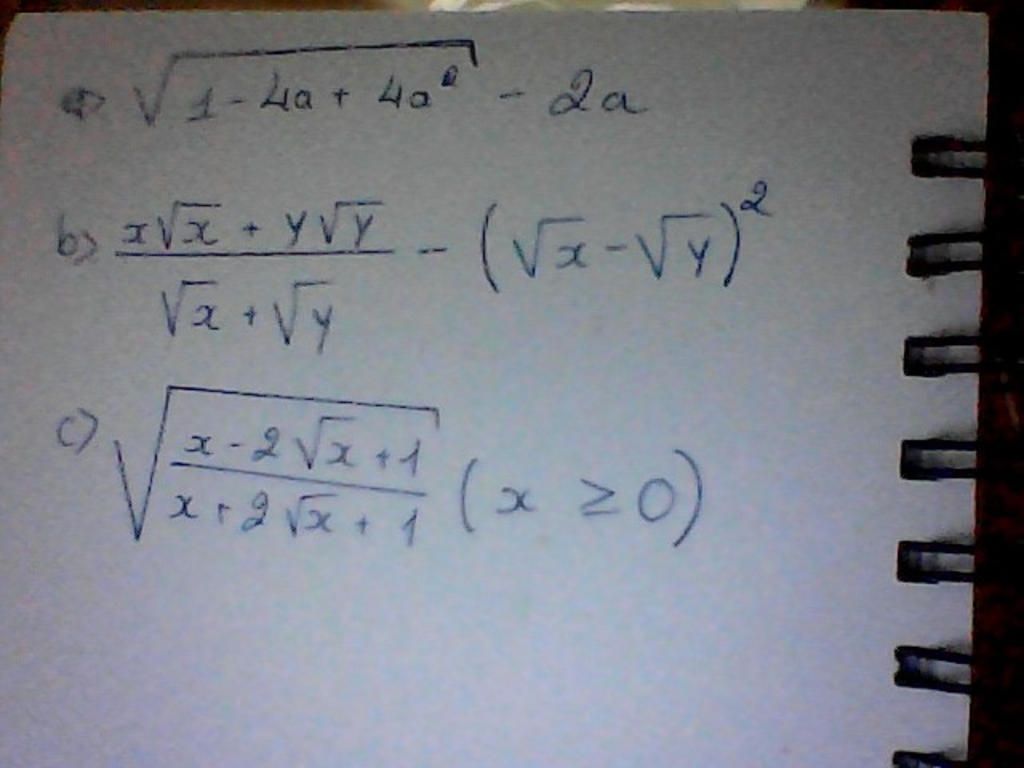 a) √(1 - 4a + 4a²) - 2a
b) (x√x + y√y)/(√x + √y) - (√x - √y)²
c) √((x - 2√x + 1)/(x + 2√x + 1)) (x ≥ 0)